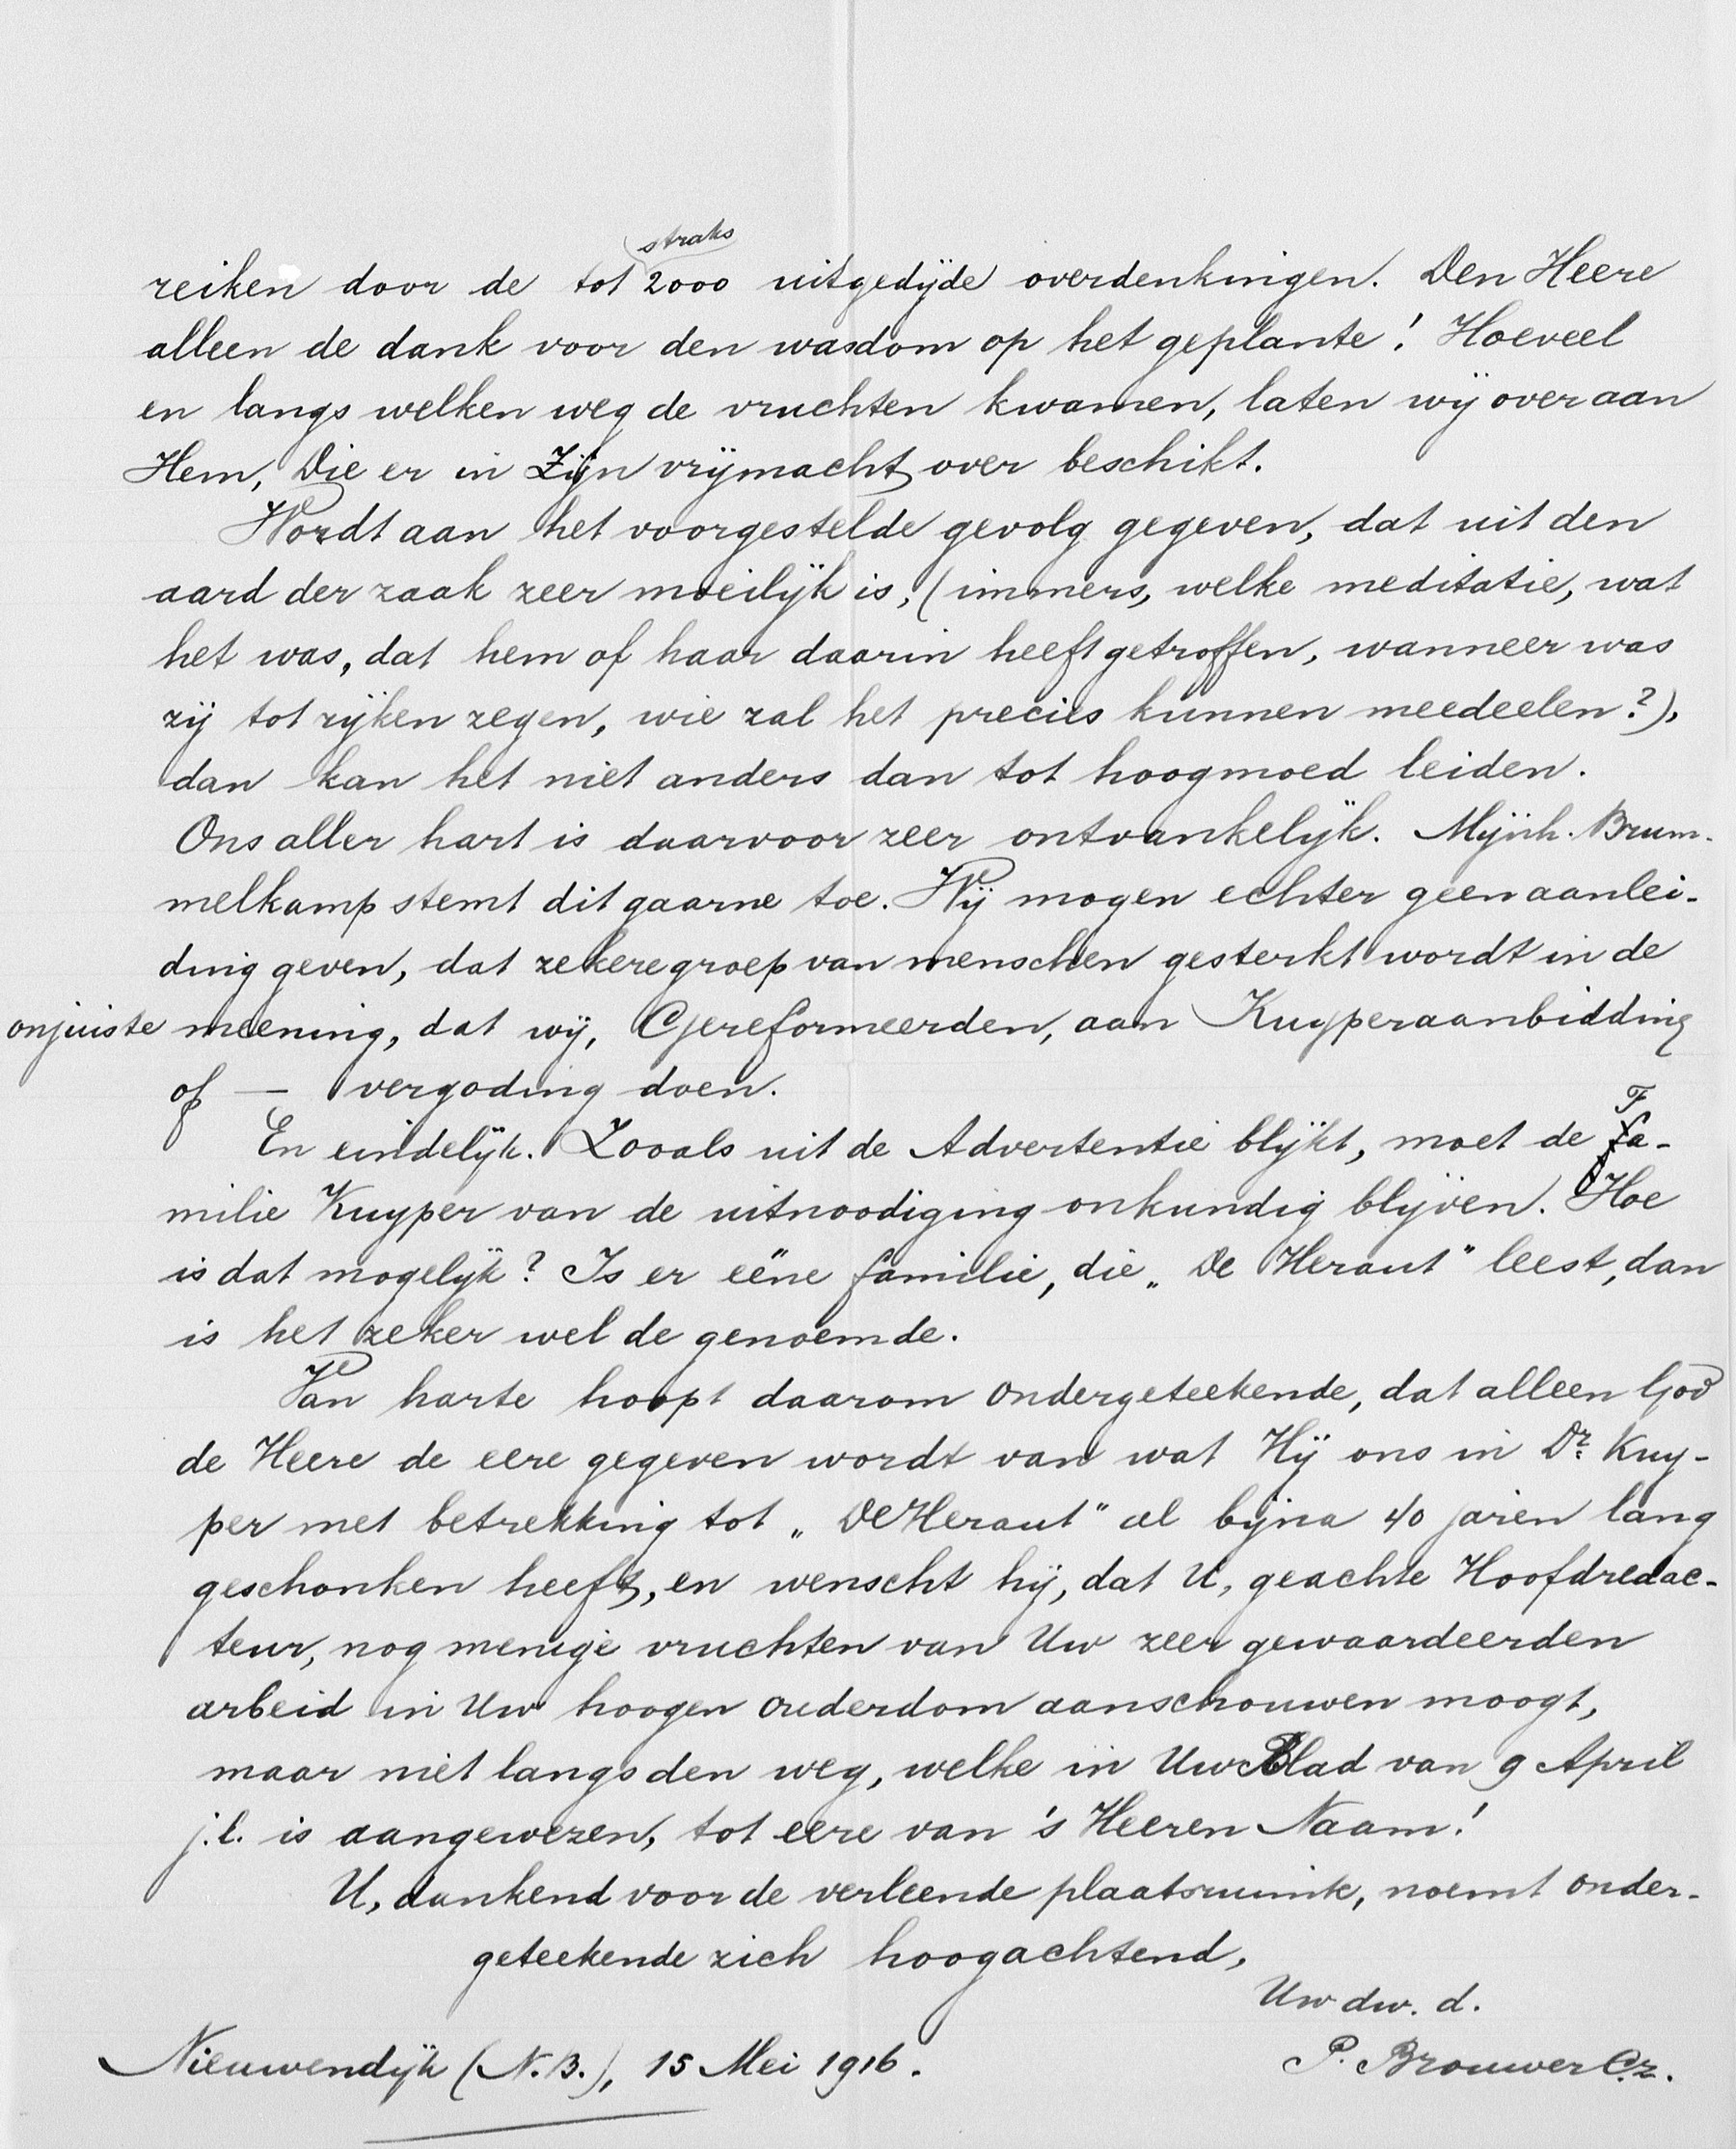 straks
reiken door de tot 2000 uitgedijde overdenkingen. Den Heere
alleen de dank voor den wasdom op het geplante! Hoeveel
en langs welken weg de vruchten kwamen, laten wij over aan
Hem, Die er in Zijn vrijmacht over beschikt.
Wordt aan het voorgestelde gevolg gegeven, dat uit den
aard der zaak zeer moeilijk is, (immers, welke meditatie, wat
het was, dat hem of haar daarin heeft getroffen, wanneer was
zij tot rijken zegen, wie zal het precies kunnen meedeelen?),
dan kan het niet anders dan tot hoogmoed leiden.
Ons aller hart is daarvoor zeer ontvankelijk. Mijnh. Brum-
melkamp stemt dit gaarne toe. Wij mogen echter geen aanlei-
ding geven, dat zekere groep van menschen gesterkt wordt in de
onjuiste meening, dat wij, Gereformeerden, aan Kuyperaanbidding
of — vergoding doen.
En eindelijk. Zooals uit de Advertentie blijkt, moet de Fa-
milie Kuyper van de uitnoodiging onkundig blijven. Hoe
is dat mogelijk? Is er eéne familie, die „De Heraut" leest, dan
is het zeker wel de genoemde.
Van harte hoopt daarom ondergeteekende, dat alleen God
de Heere de eere gegeven wordt van wat Hij ons in Dr. Kuy-
per met betrekking tot „De Heraut" al bijna 40 jaren lang
geschonken heeft, en wenscht hij, dat U, geachte Hoofdredac-
teur, nog menige vruchten van Uw zeer gewaardeerden
arbeid in Uw hoogen ouderdom aanschouwen moogt,
maar niet langs den weg, welke in Uw Blad van 9 April
j.l. is aangewezen, tot eere van 's Heeren Naam!
U, dankend voor de verleende plaatsruimte, noemt onder-
geteekende zich hoogachtend,
Uw dw. d.
P. Brouwer Cz.
Nieuwendijk (N.B.), 15 Mei 1916.